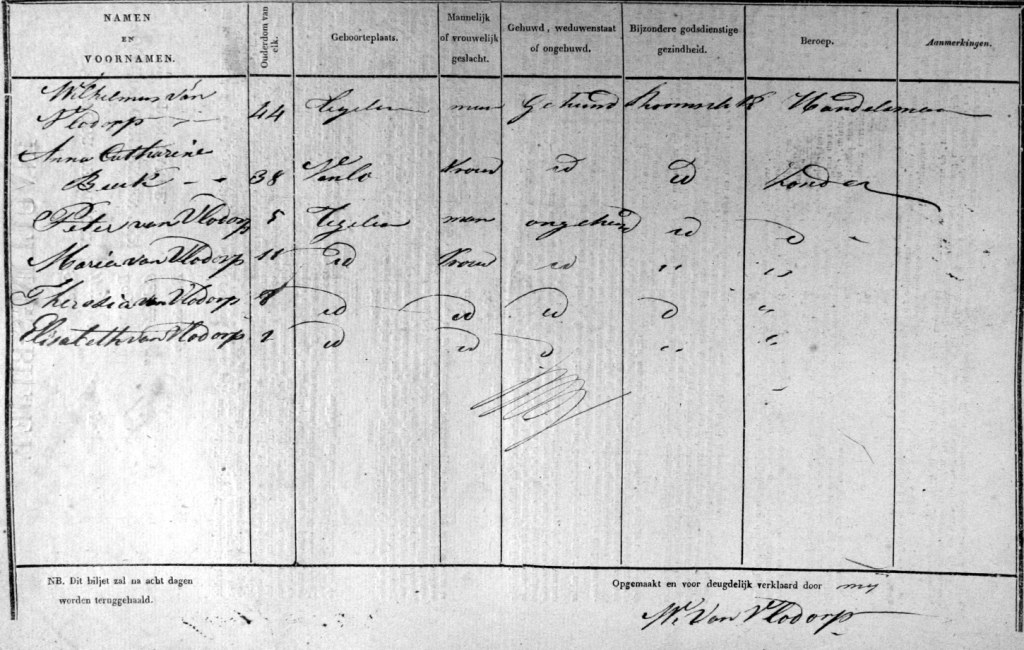 NAMEN EN VOORNAMEN. Ouderdom van elk. Geboorteplaats. Mannelijk of vrouwelijk geslacht. Gehuwd, weduwenstaat of ongehuwd. Bijzondere godsdienstige gezindheid. Beroep. Aanmerkingen.
Wilhelmus van
Vlodorp 44 Tegelen man Gehuwd Handelsman
Anna Catharine
38 Venlo vrouw id id zonder
Peter van Vlodorp 5 Tegelen man ongehuwd id
Maria van Vlodorp 11 id vrouw id ,, ,,
Theresia van Vlodorp 8 id id id ,,
Elisabeth van Vlodorp 2 id id ,, ,,
NB. Dit biljet zal na acht dagen
worden teruggehaald.
Opgemaakt en voor deugdelijk verklaard door my
W. Van Vlodorp